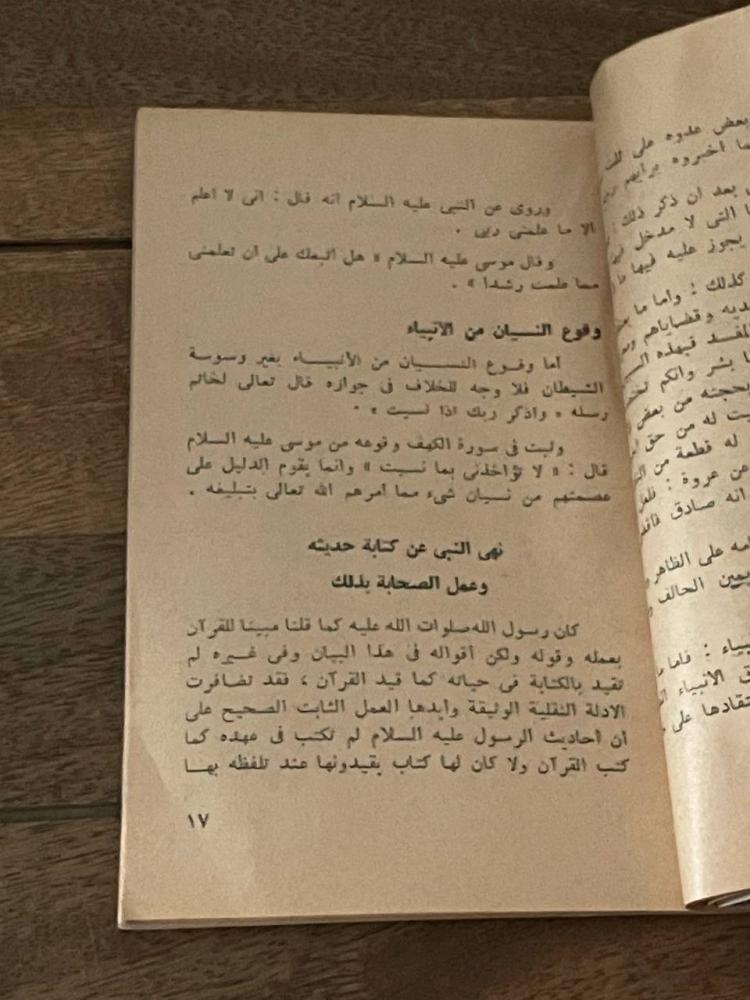 وروى عن النبى عليه السلام انه قال : انى لا اعلم
الا ما علمنى ربى .
وقال موسى عليه السلام « هل أتبعك على ان تعلمنى
مما علمت رشدا » .
وقوع النسيان من الأنبياء
أما وقوع النسيان من الأنبياء بغير وسوسة
الشيطان فلا وجه للخلاف فى جوازه قال تعالى لخاتم
رسله « واذكر ربك اذا نسيت » .
وثبت فى سورة الكهف وقوعه من موسى عليه السلام
قال : « لا تؤاخذنى بما نسيت » وانما يقوم الدليل على
عصمتهم من نسيان شىء مما أمرهم الله تعالى بتبليغه .
نهى النبى عن كتابة حديثه
وعمل الصحابة بذلك
كان رسول الله صلوات الله عليه كما قلنا مبينا للقرآن
بعمله وقوله ولكن أقواله فى هذا البيان وفى غيره لم
تقيد بالكتابة فى حياته كما قيد القرآن ، فقد تضافرت
الادلة النقلية الوثيقة وايدها العمل الثابت الصحيح على
أن أحاديث الرسول عليه السلام لم تكتب فى عهده كما
كتب القرآن ولا كان لها كتاب يقيدونها عند تلفظه بها
١٧
بعض عدوه على
ما اخبروه برأيهم
بعد ان ذكر ذلك :
التى لا مدخل فيها
يجوز عليه فيها ما
كذلك : وأما ما
وقضاياهم
بشر وانكم
بحجته من بعض
له من حق
له قطعة من
عن عروة :
انه صادق
على الظاهر
يمين الحالف
: فاما ما
الأنبياء
على